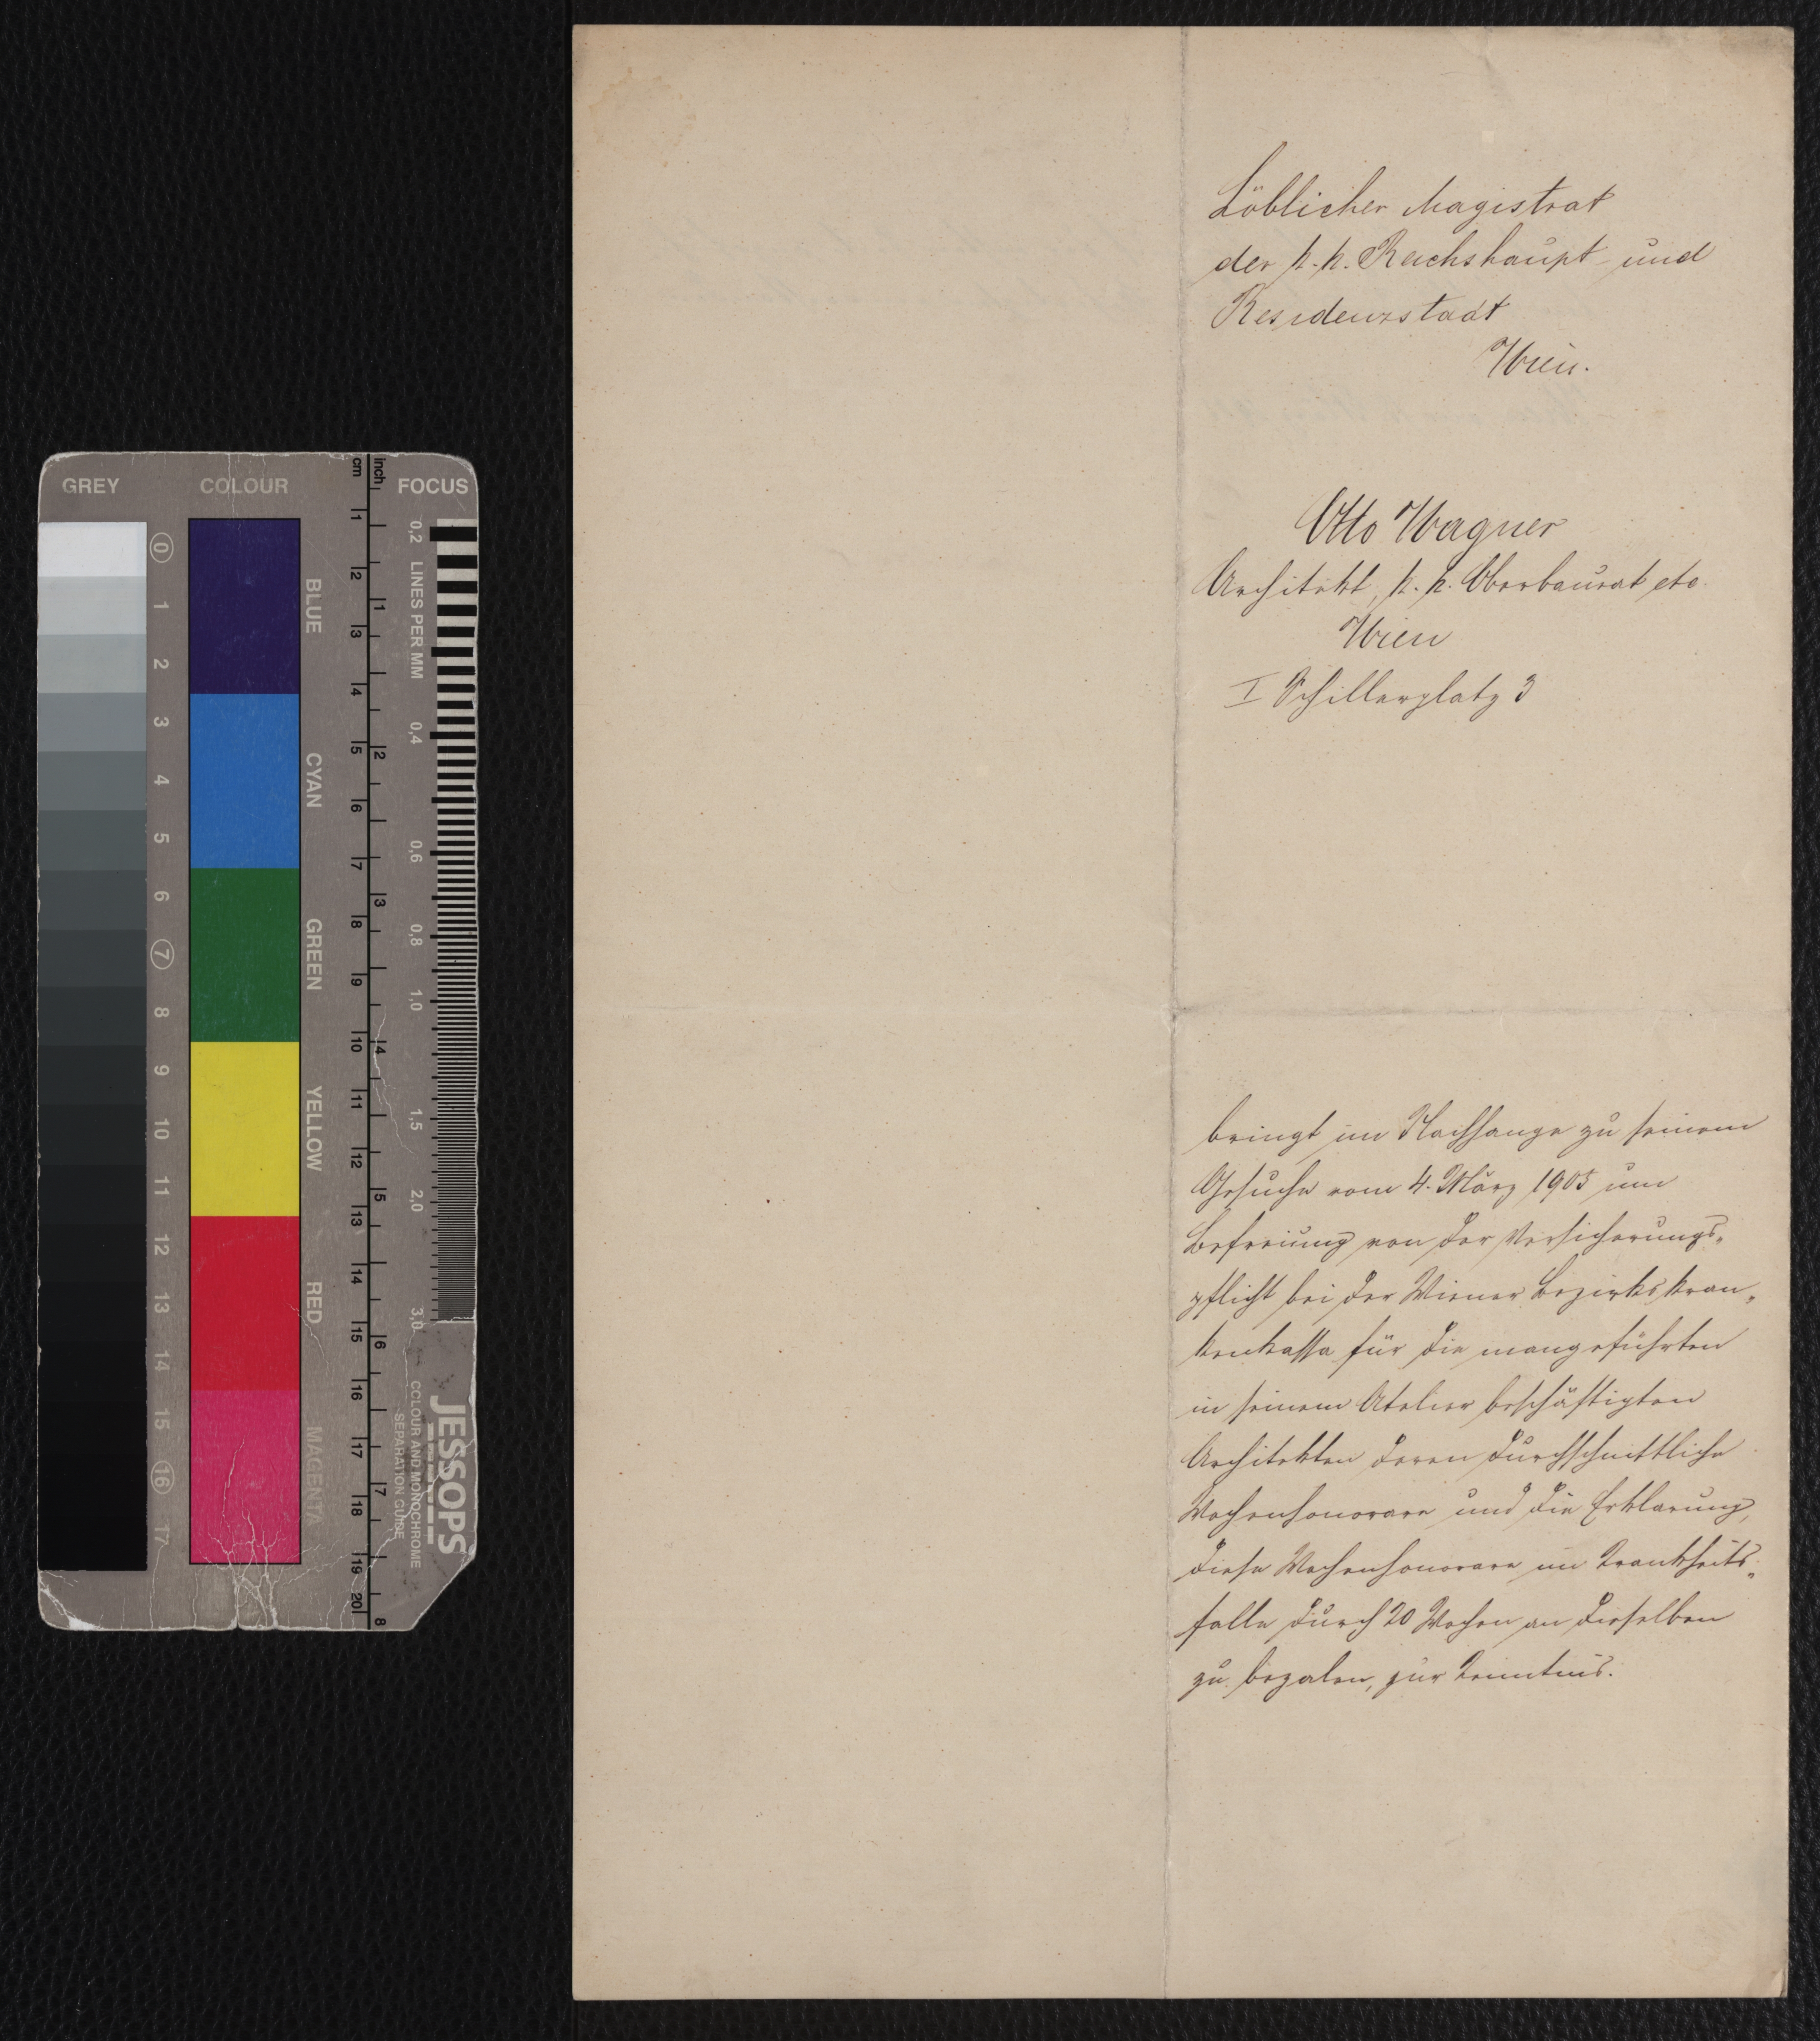 GREY COLOUR FOCUS
cm inch
0 1 2 3 4 5 6 7 8 9 10 11 12 13 14 15 16 17
BLUE CYAN GREEN YELLOW RED MAGENTA
1 2 3 4 5 6 7 8 9 10 11 12 13 14 15 16 17 18 19 20
1 2 3 4 5 6 7 8
0,2 LINES PER MM 0,4 0,6 0,8 1,0 1,5 2,0 3,0
JESSOPS
COLOUR AND MONOCHROME
SEPARATION GUIDE
Löblicher Magistrat
der k. k. Reichshaupt- und
Residenzstadt
Wien.
Otto Wagner
Architekt, k. k. Oberbaurat etc.
Wien
I Schillerplatz 3
bringt im Nachhange zu seinem
Gesuche vom 4. März 1905 um
Befreiung von der Versicherungs-
pflicht bei der Wiener Bezirkskran-
kenkassa für die
in seinem Atelier beschäftigten
Architekten deren durchschnittliche
Wochenhonorare und die Erklarung,
diese Wochenhonorare im Krankheits-
falle durch 20 Wochen an dieselben
zu bezalen, zur Kenntnis.